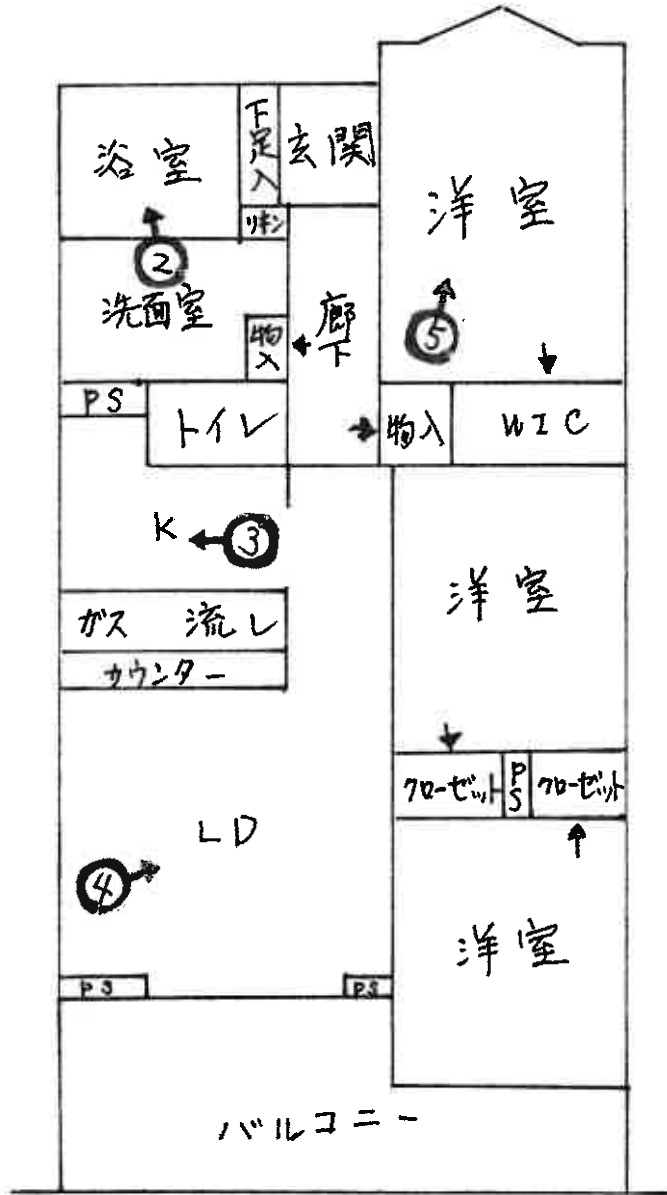 浴室
下足入
玄関
リネン
洋室
②
洗面室
物入
廊下
⑤
PS
トイレ
物入
WIC
K
③
洋室
ガス 流し
カウンター
クローゼット
PS
クローゼット
LD
④
洋室
PS
PS
バルコニー